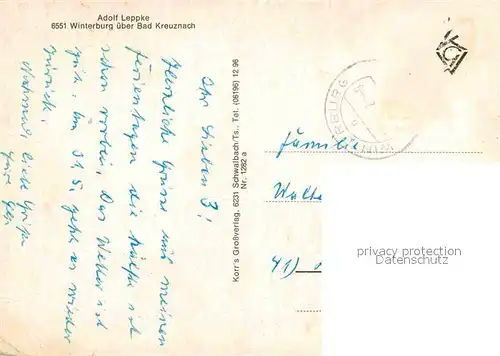 Adolf Leppke
6551 Winterburg über Bad Kreuznach
Ihr Lieben 3!
Herzliche Grüsse aus meinen
Ferientagen die hälfte ist
schon vorbei. Das Wetter ist
gut. Am 31.5. geht es wieder
zurück.
Nochmal liebe Grüße
Eure
Korr's Großverlag, 6231 Schwalbach/Ts., Tel. (06196) 12 96
Nr. 1282 a
WINTERBURG
Familie
Walte
41)
privacy protection
watermark